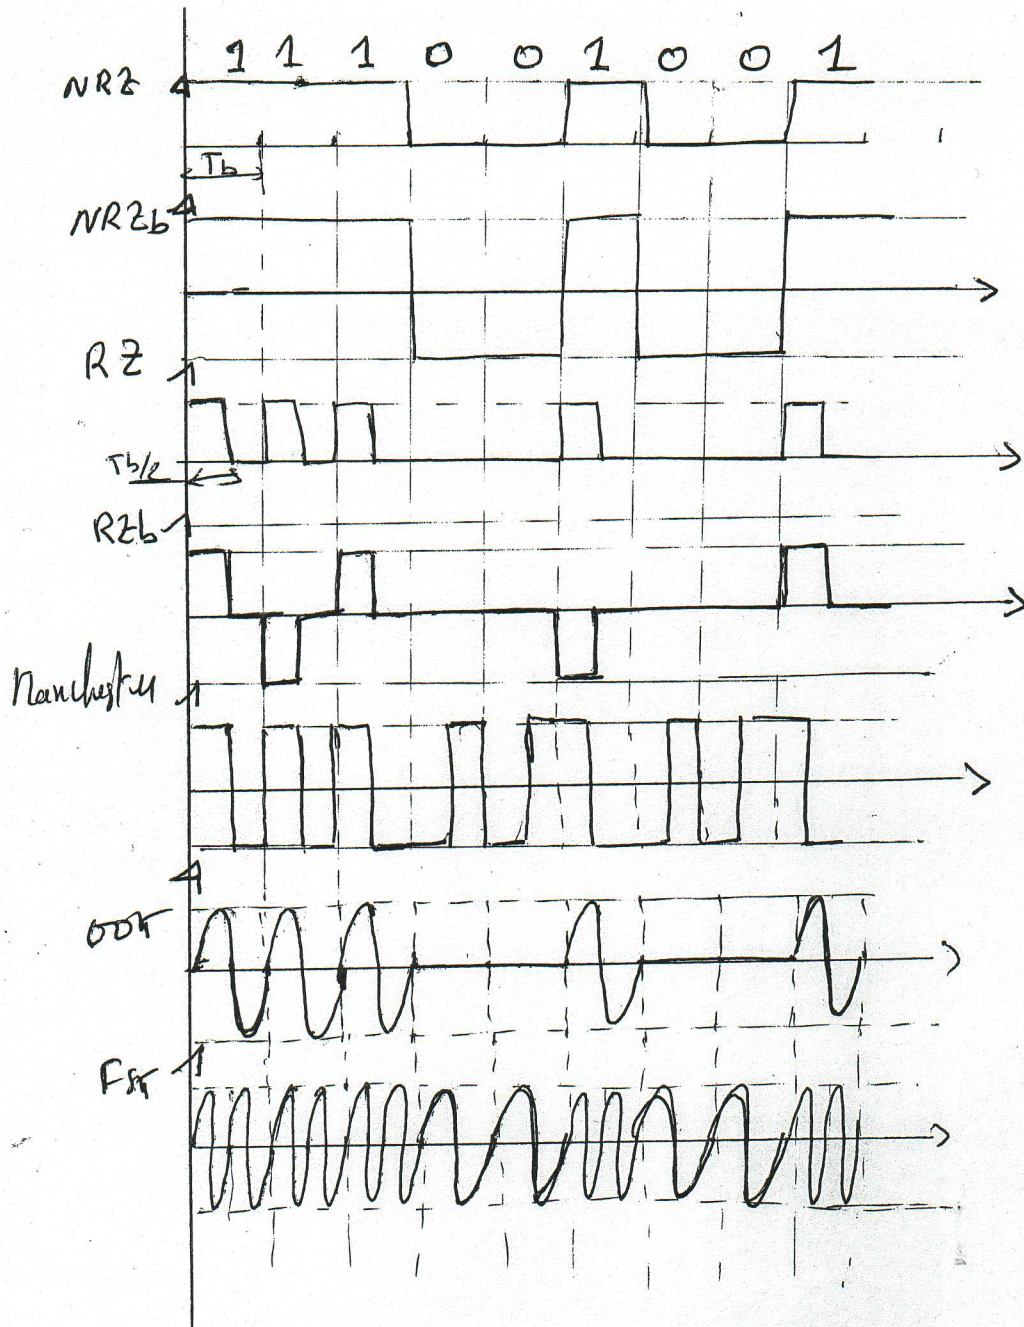 1 1 1 0 0 1 0 0 1
NRZ
Tb
NRZb
RZ
Tb/2
RZb
Manchester
OOK
FSK